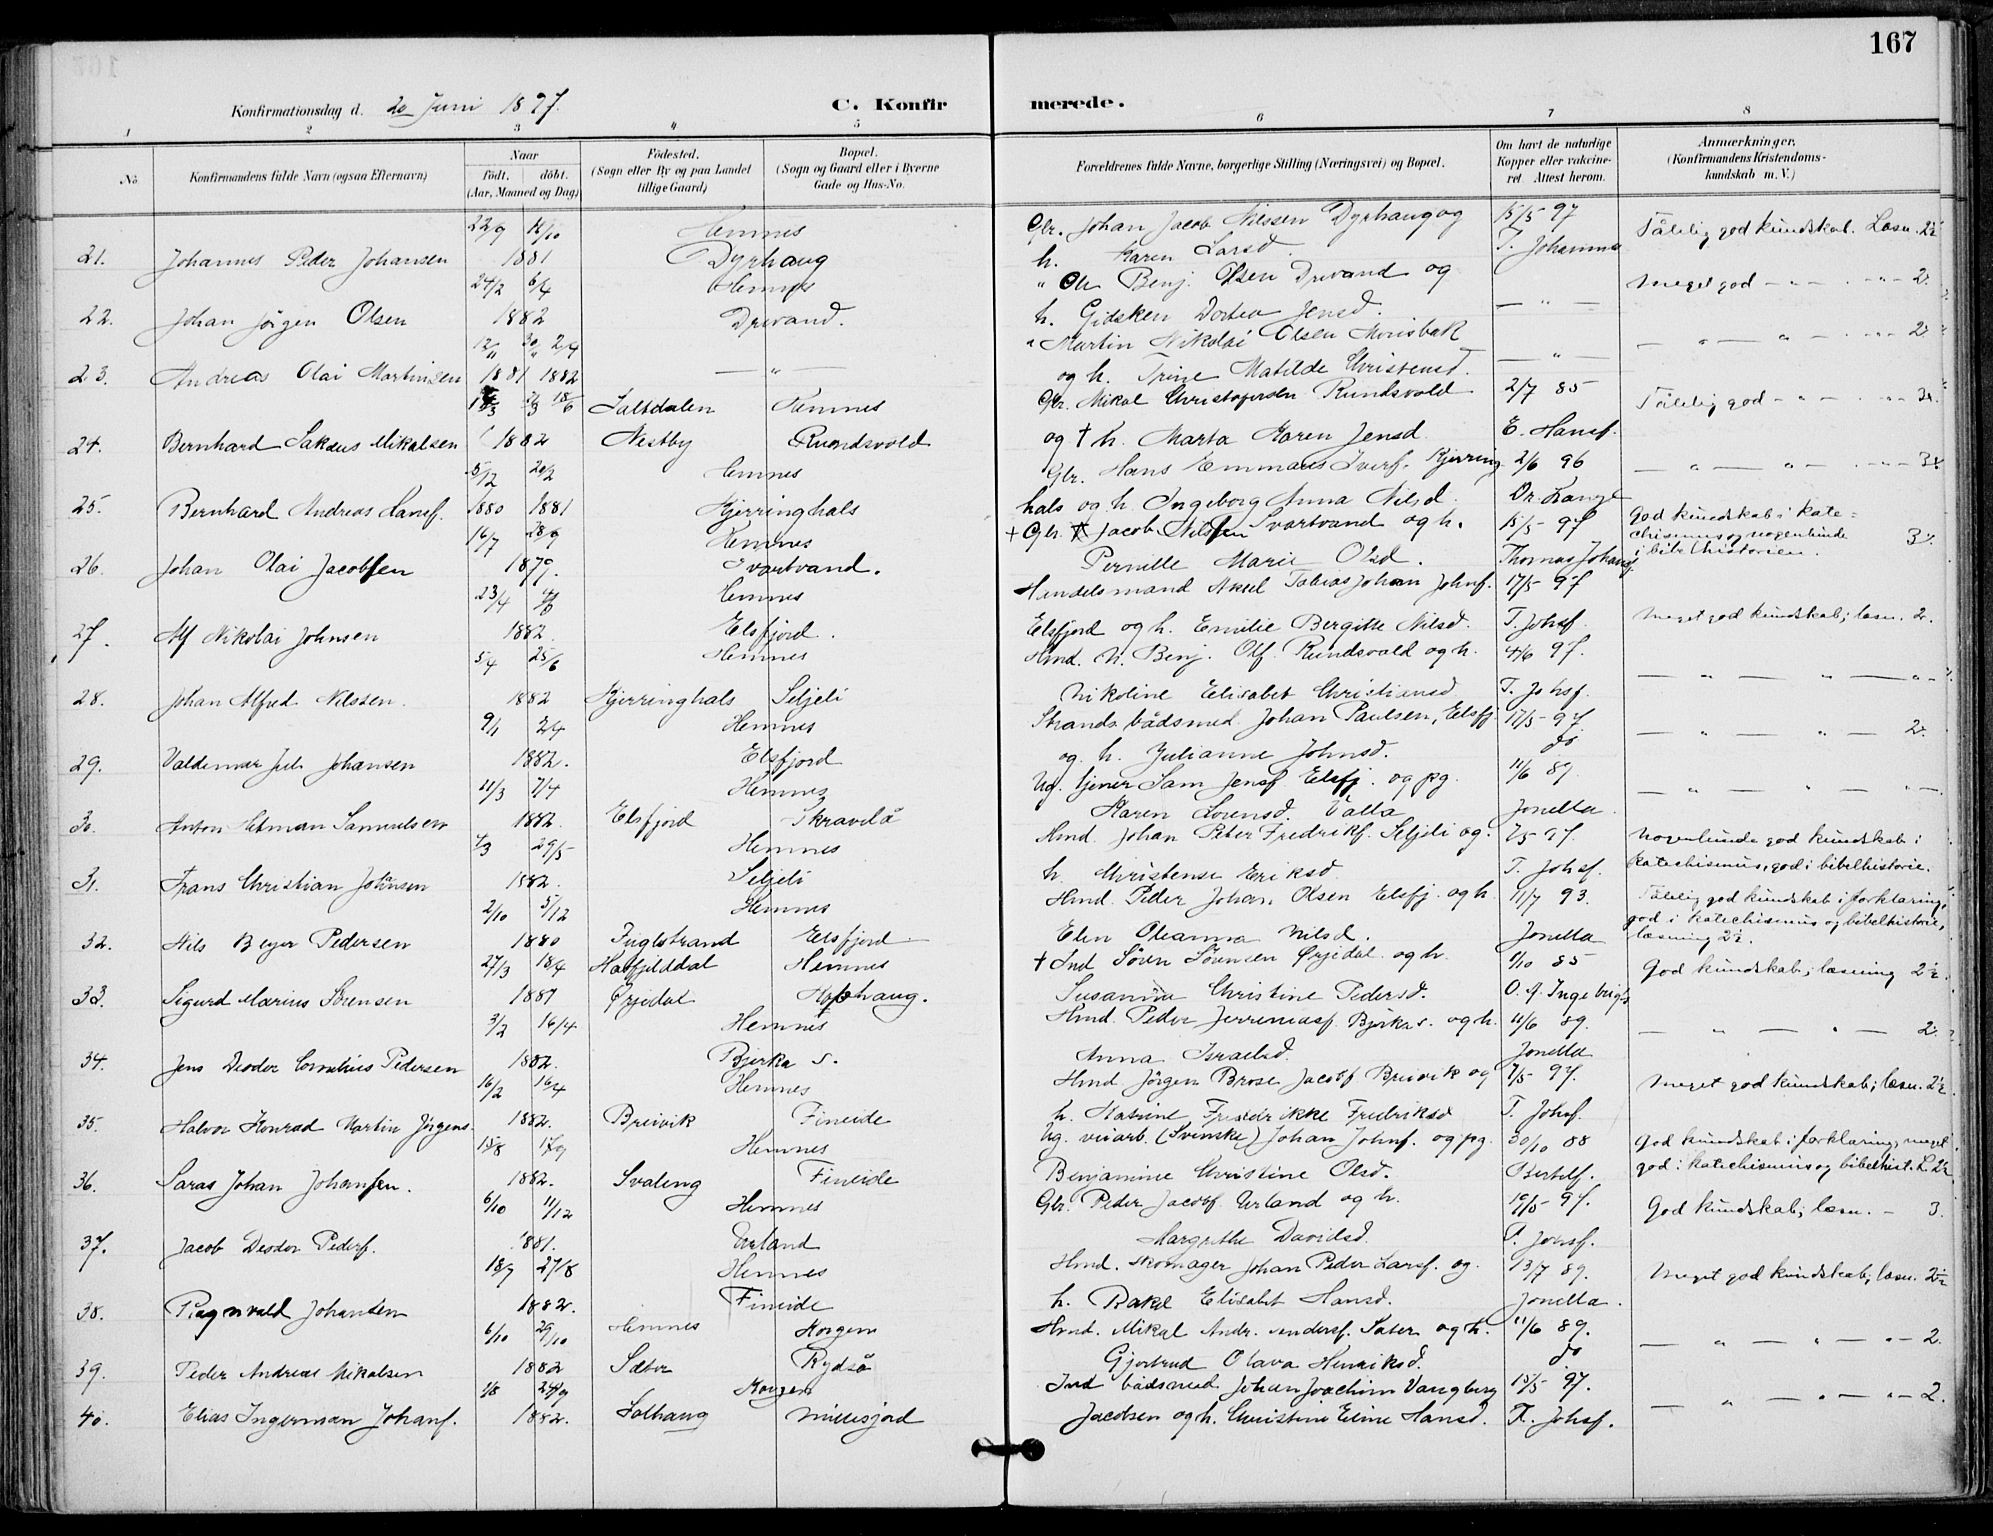 167
Konfirmationsdag d. 20 Juni 1897. C. Konfirmerede.
1 2 3 4 5 6 7 8
No
Konfirmandens fulde Navn (ogsaa Efternavn)
Naar
født. døbt.
(Aar, Maaned og Dag)
Fødested.
(Sogn eller By og paa Landet
tillige Gaard)
Bopæl.
(Sogn og Gaard eller i Byerne
Gade og Hus-No.
Forældrenes fulde Navne, borgerlige Stilling (Næringsvei) og Bopæl.
Om havt de naturlige
Kopper eller vakcine-
ret. Attest herom.
Anmærkninger,
(Konfirmandens Kristendoms-
kundskab m. V.)
22/9 Hemnes Gbr. Johan Jacob Nilssen Dyrhaug og 15/5 97 Tålelig god kundskab. Læsn. 2½
21. Johannes Peder Johansen 1881 Dyrhaug h. Karen Larsd. T. Johanns
24/2 6/4 Hemnes " Ole Benj. Olsen Drevand og Meget god - " - " - 2.
22. Johan Jörgen Olsen 1882 Drevand. h. Gidsken Dortea Jensd. — " —
12/11 30/11 2/4 " Martin Nikolai Olsen — " — " — 2
23. Andreas Olai Martinsen 1881 1882 — " — og h. Trine Matilde Christensd. — " —
18/6 Saltdalen Hemnes Gbr. Mikal Christofersen Rundsvold 2/7 85 Tålelig god - " -
24. Bernhard Sakæus Mikalsen 1882 Nestby Rundsvold og † h. Marta Karen Jensd. E. Hansf.
5/12 20/2 Hemnes Gbr. Hans Emmaus Iverf. Kjerring 2/6 96 — " — " —
25. Bernhard Andreas Hansf. 1880 1881 Kjerringhals hals og h. Ingeborg Anna Nilsd. Dr. Lange
16/7 28/9 Hemnes † Gbr. Jacob Nilssen Svartvand og h. 15/5 97 God kundskab i kate=
chismus og nogenlunde
i bibelhistorien. 3½
26. Johan Olai Jacobsen 1879. Svartvand. Pernille Marie Olsd. Thomas Johansf.
23/4 Hemnes Handelsmand Aksel Tobias Johan Johnf. 17/5 97
27. Alf Nikolai Johnsen 1882. Elsfjord. Elsfjord og h. Emilie Bergitte Nilsd. T. Johsf. Meget god kundskab; læsn. 2.
5/4 25/6 Hemnes Hmd. N. Benj. Olf. Rundsvold og h. 4/6 97.
28. Johan Alfred Nilssen. 1882 Kjerringhals Seljeli Nikoline Elisabet Christiansd. T. Johsf. — " — " — " -
9/1 2/4 Hemnes Strands. bådsmed Johan Paulsen, Elsfj. 17/5 97.
29. Valdemar Jul. Johansen 1882. Elsfjord og h. Julianne Johnsd. do — " — " — 2.
11/3 7/4 Hemnes Ug. tjener Sam Jensf. Elsfj. og pg. 11/6 89.
30. Anton Samuelsen 1882. Elsfjord Karen Lorensd. Valla Jonetta — " — " — " —
4/3 29/5 Hemnes Hmd. Johan Peter Fredrikf. Seljeli og 7/5 97. Nogenlunde god kundskab i
31. Frans Christian Johansen 1882. Seljeli h. Christense Eriksd. T. Johsf. katechismus, god i bibelhistorie.
2/10 5/12 Hemnes Hmd. Peder Johan Olsen Elsfj. og h. 11/7 93. Tålelig god kundskab i forklaring,
god i katechismus og bibelhistorie,
32. Nils Beyer Pedersen 1880 Fuglstrand Elsfjord Elen Oleanna Nilsd. Jonetta læsning 2½.
27/3 18/4 Hatfjelddal Hemnes † Ind. Sören Sörensen Ørjedal og h. 1/10 85 God kundskab; læsning 2½.
33. Sigurd Marius Sörensen 1881 Ørjedal Susanna Christine Pedersd. O. A. Ingebrigts
3/2 16/4 Hemnes Hmd. Peder Jerremiasf. Bjerka s. og h. 11/6 89. — " — " — 2.
34. Jens Deodor Cornelius Pedersen 1882. Bjerka s. Anna Israelsd. Jonetta
16/2 16/4 Hemnes Hmd Jörgen Brose Jacobf. Breivik og 7/5 97. Meget god kundskab; læsn. 2½
35. Halvor Konrad Martin Jörgens. 1882. Breivik Fineide h. Katrine Fredrikke Fredriksd T. Johsf.
15/8 17/9 Hemnes Ug. veiarb. (Svenske) Johan Johnf. og pg. 30/10 88 God kundskab i forklaring, meget
36. Saras Johan Johansen. 1882. Svaleng Fineide Benjamine Christine Olsd. Bertelf. god i katechismus og bibelhist. L. 2½
6/10 11/12 Hemnes Gbr. Peder Jacobf. Urland og h. 19/5 97. God kundskab; læsn. - 3.
37. Jacob Deodor Pederf. 1881. Urland Margrethe Davidsd. T. Johsf.
18/7 27/8 Hemnes Hmd. skomager Johan Peder Larsf. og 13/7 89. Meget god kundskab; læsn. 2½
38. Ragnvald Johansen 1882. Fineide h. Rakel Elisabet Hansd. Jonetta.
6/10 29/10 Hemnes Korgen Hmd. Mikal Andr. Andersf. Sæter og h. 11/6 89.
39. Peder Andreas Mikalsen 1882 Sæter Rydså Gjertrud Olava Henriksd. do — " — " — " - 2.
1/8 24/9 Korgen Ind. bådsmed Johan Joachim Vangberg 15/5 97.
40. Elias Ingerman Johansf. 1882. Solhaug Jacobsen og h. Christine Eline Hansd. T. Johsf. — " — " — " - 2.